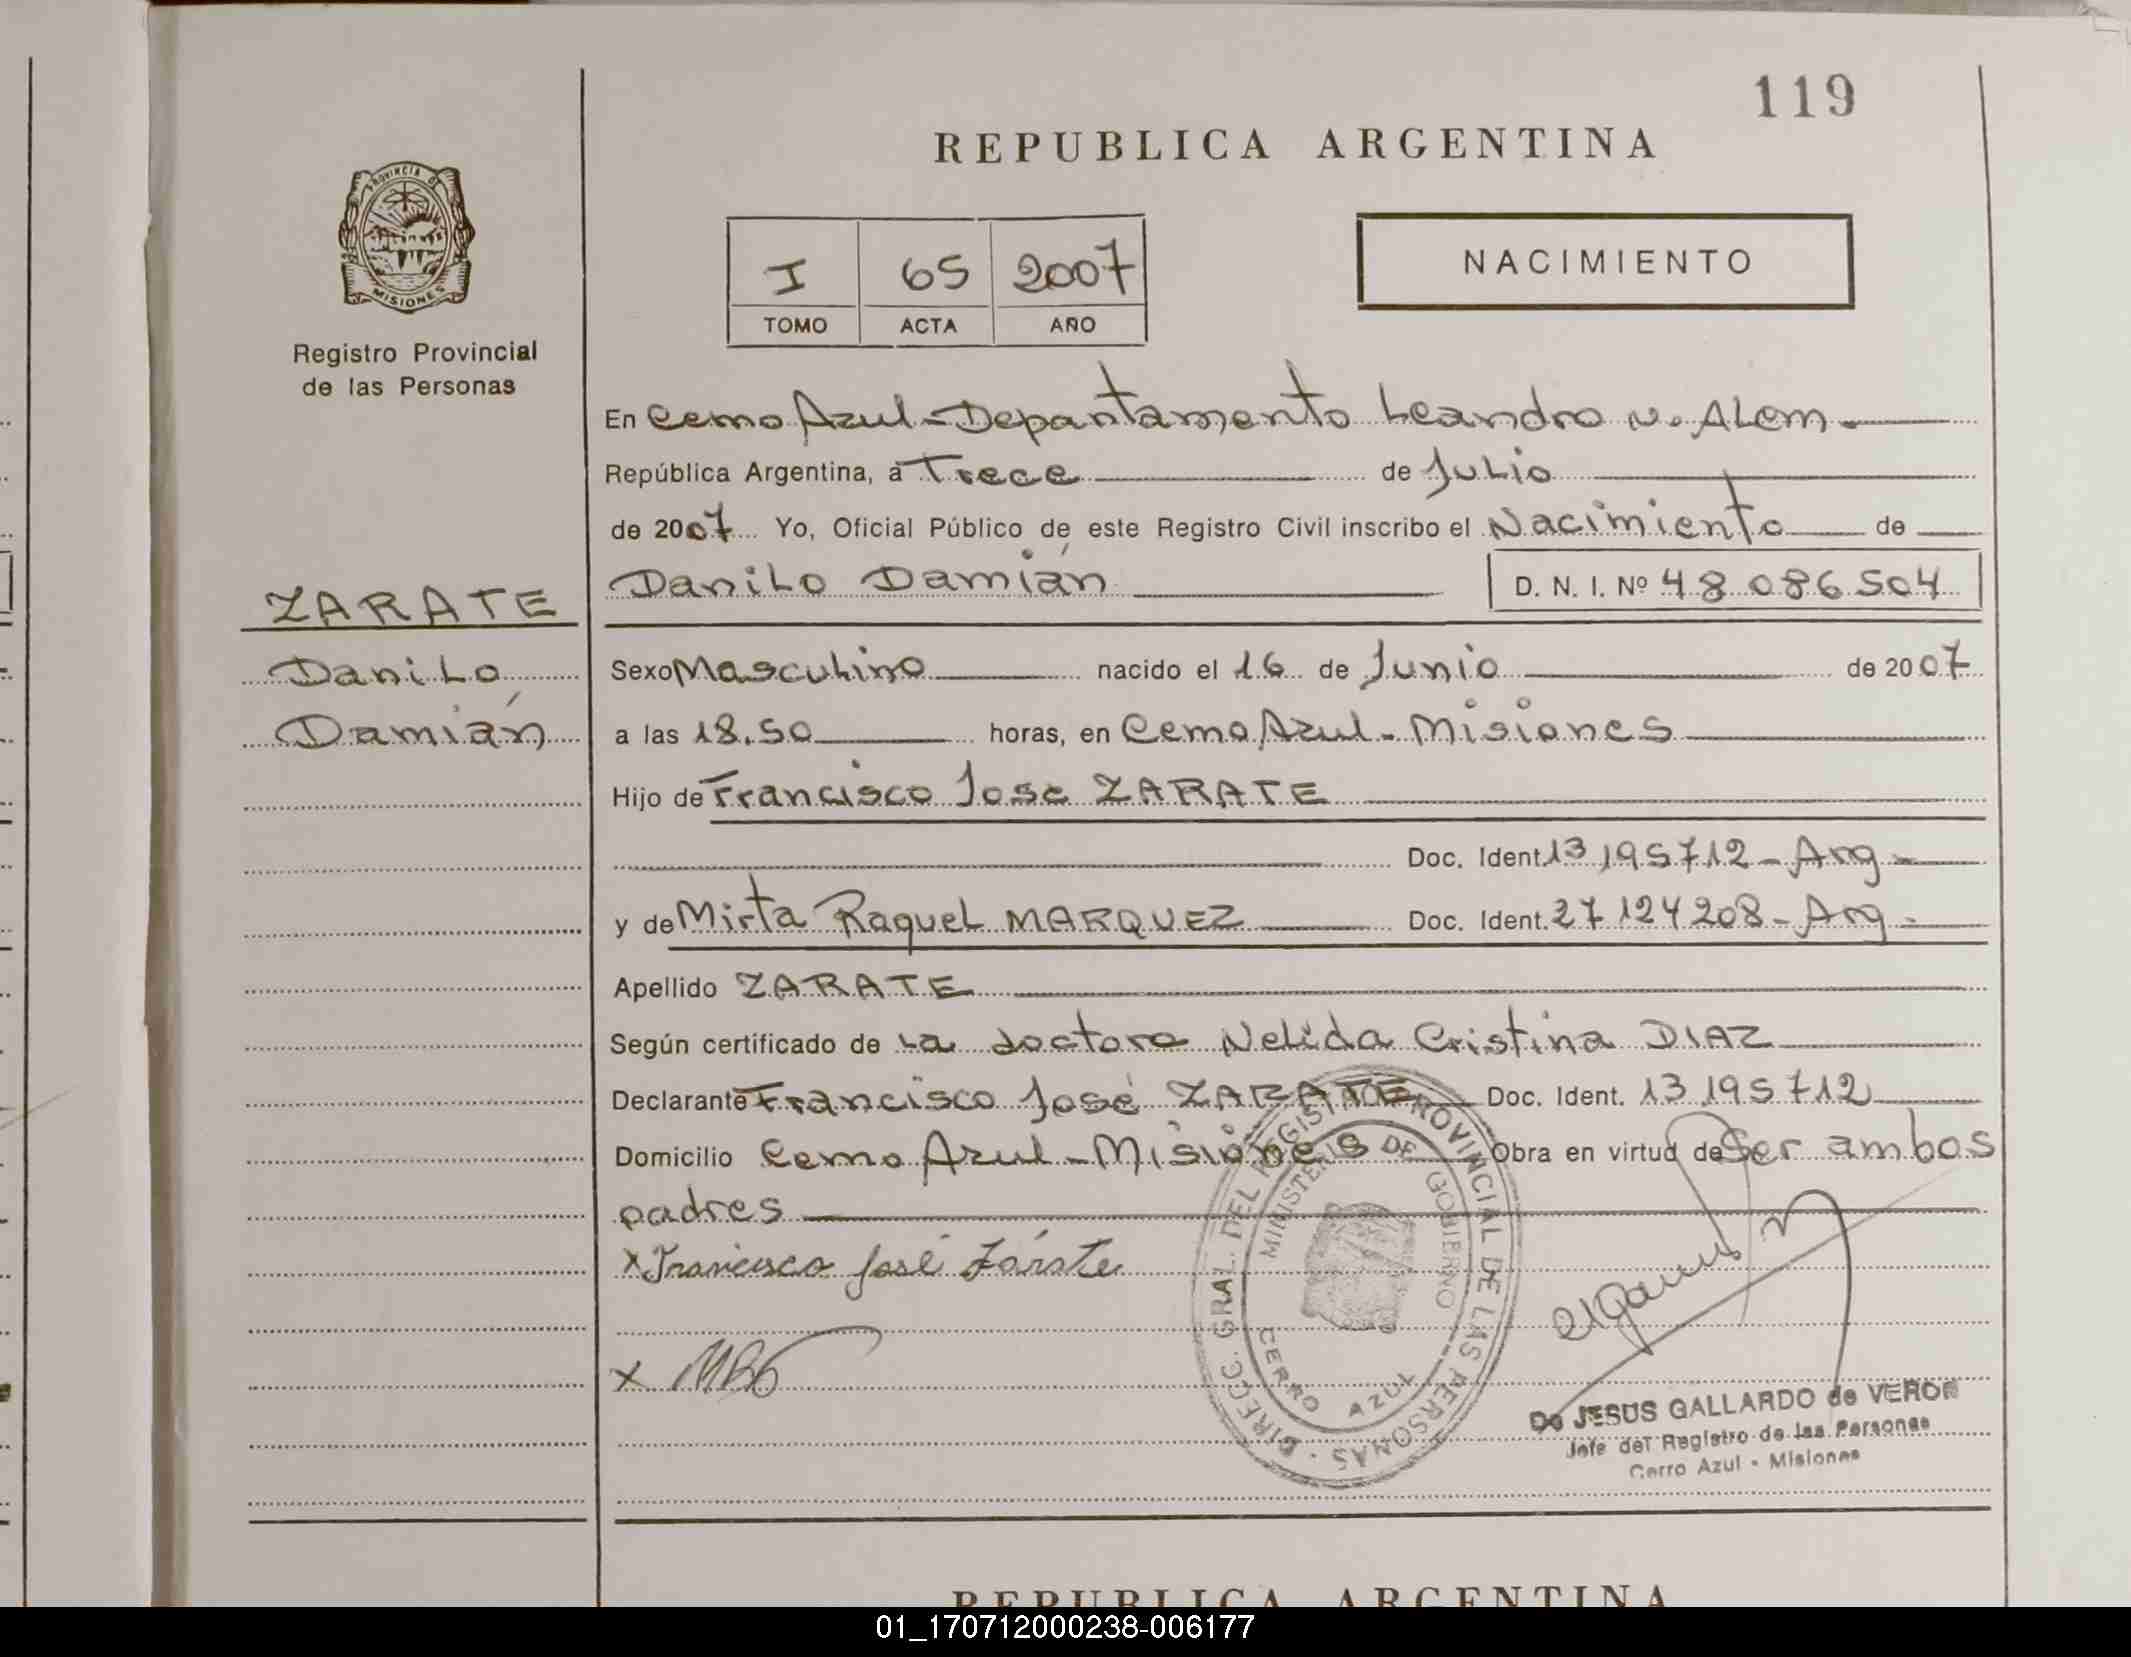 119
REPUBLICA ARGENTINA
PROVINCIA DE
MISIONES
Registro Provincial
de las Personas
I 65 2007
TOMO ACTA AÑO
NACIMIENTO
En Cerro Azul - Departamento Leandro N. Alem -
República Argentina, a Trece de Julio
de 2007 Yo, Oficial Público de este Registro Civil inscribo el Nacimiento de
Danilo Damián D. N. I. Nº 48.086.504
ZARATE
Danilo
Damián
Sexo Masculino nacido el 16 de Junio de 2007
a las 18.50 horas, en Cerro Azul - Misiones
Hijo de Francisco José ZARATE
Doc. Ident. 13.195712 - Arg -
y de Mirta Raquel MARQUEZ Doc. Ident. 27124208 - Arg -
Apellido ZARATE
Según certificado de La doctora Nelida Cristina DIAZ
Declarante Francisco José ZARATE Doc. Ident. 13195712
Domicilio Cerro Azul - Misiones Obra en virtud de Ser ambos
padres
x Francisco José Zárate
x
DIRECC. GRAL. DEL REGISTRO PROVINCIAL DE LAS PERSONAS
MINISTERIO DE GOBIERNO
CERRO AZUL
De JESUS GALLARDO de VERON
Jefe del Registro de las Personas
Cerro Azul - Misiones
REPUBLICA ARGENTINA
01_170712000238-006177